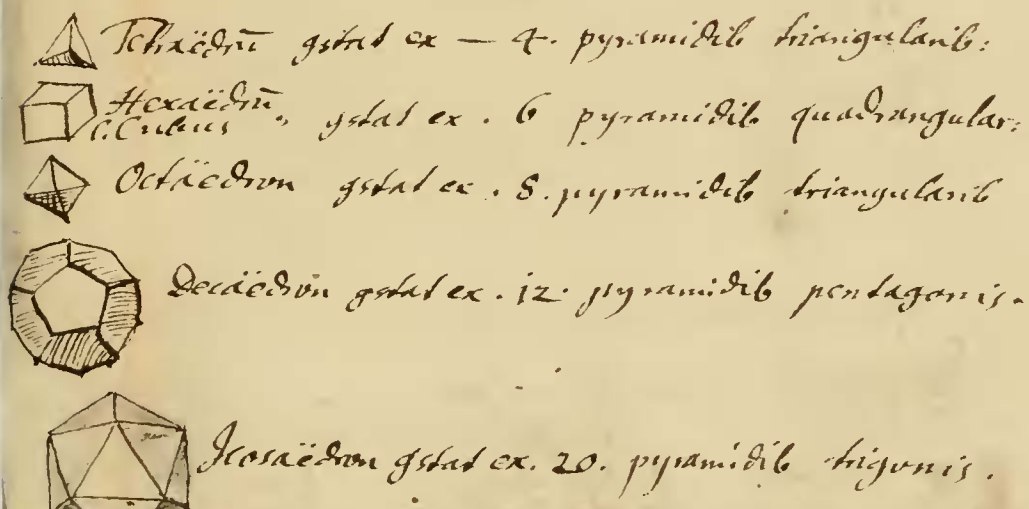 Tetraëdrū gstat ex — 4. pyramidib triangularib:
Hexaëdrū
C. Cubus " gstat ex . 6 pyramidib quadrangular:
Octaëdron gstat ex . 8. pyramidib triangularib
Decäedron gstat ex . 12. pyramidib pentagonis.
Icosaëdron gstat ex. 20. pyramidib trigonis.